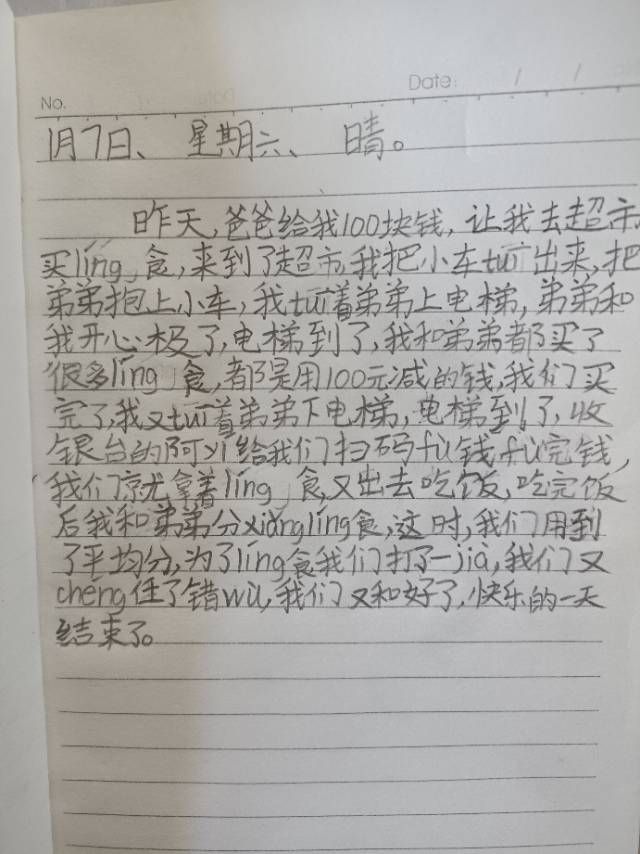 No.
Date: / /
1月7日、 星期六、 晴。
昨天,爸爸给我100块钱,让我去超市
买líng食,来到了超市,我把小车tuī出来,把
弟弟抱上小车,我tuī着弟弟上电梯,弟弟和
我开心极了,电梯到了,我和弟弟都买了
很多líng食,都是用100元减的钱,我们买
完了,我又tuī着弟弟下电梯,电梯到了,收
银台的阿yí给我们扫码fù钱,fù完钱,
我们就拿着líng食,又出去吃饭,吃完饭
后我和弟弟分xiǎnglíng食,这时,我们用到
了平均分,为了líng食我们打了一jià,我们又
chéng住了错wù,我们又和好了,快乐的一天
结束了。